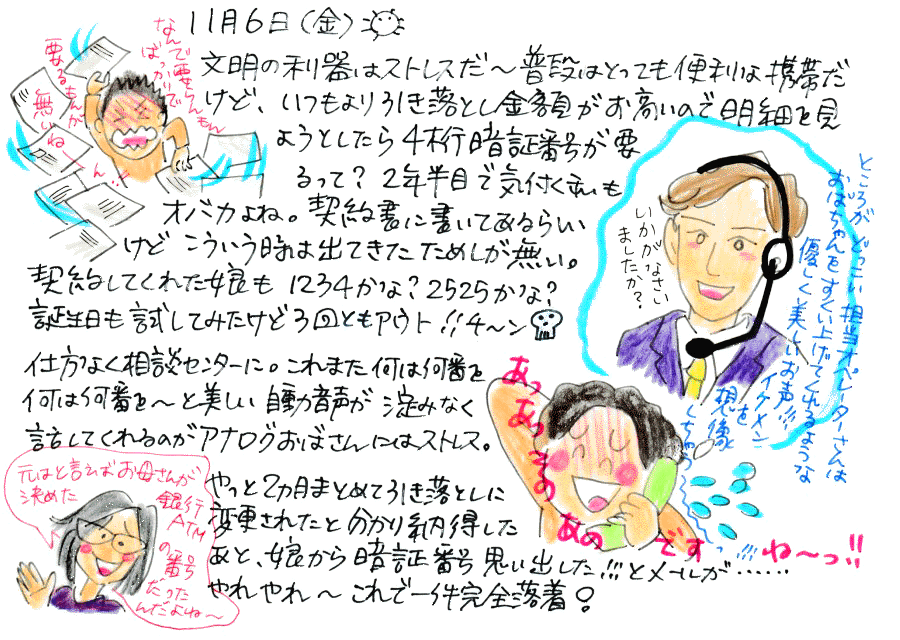 11月6日(金)
文明の利器はストレスだ〜普段はとっても便利な携帯だ
けど、いつもより引き落とし金額がお高いので明細を見
ようとしたら4桁暗証番号が要
るって?2年半目で気付く私も
オバカよね。契約書に書いてあるらしい
けどこういう時は出てきたためしが無い。
契約してくれた娘も1234かな?2525かな?
誕生日も試してみたけど3回ともアウト!!チ〜ン
仕方なく相談センターに。これまた何は何番を
何は何番を〜と美しい自動音声が淀みなく
話してくれるのがアナログおばさんにはストレス。
やっと2カ月まとめて引き落としに
変更されたと分かり納得した
あと、娘から暗証番号思い出した!!!とメールが……
やれやれ〜これで一件完全落着!
なんで要らんもん
ばっかりで
要るもんが
無いね
ん…
ところがどっこい担当オペレーターさんは
おばちゃんをすくい上げてくれるような
優しく美しいお声!!!
イケメンを
想像
しちゃう
…!!!
いかがなさい
ましたか?
あっ
あっ
あっその
あのですね〜っ!!
元はと言えばお母さんが
決めた
銀行
ATM
の番号
だった
んだよね〜